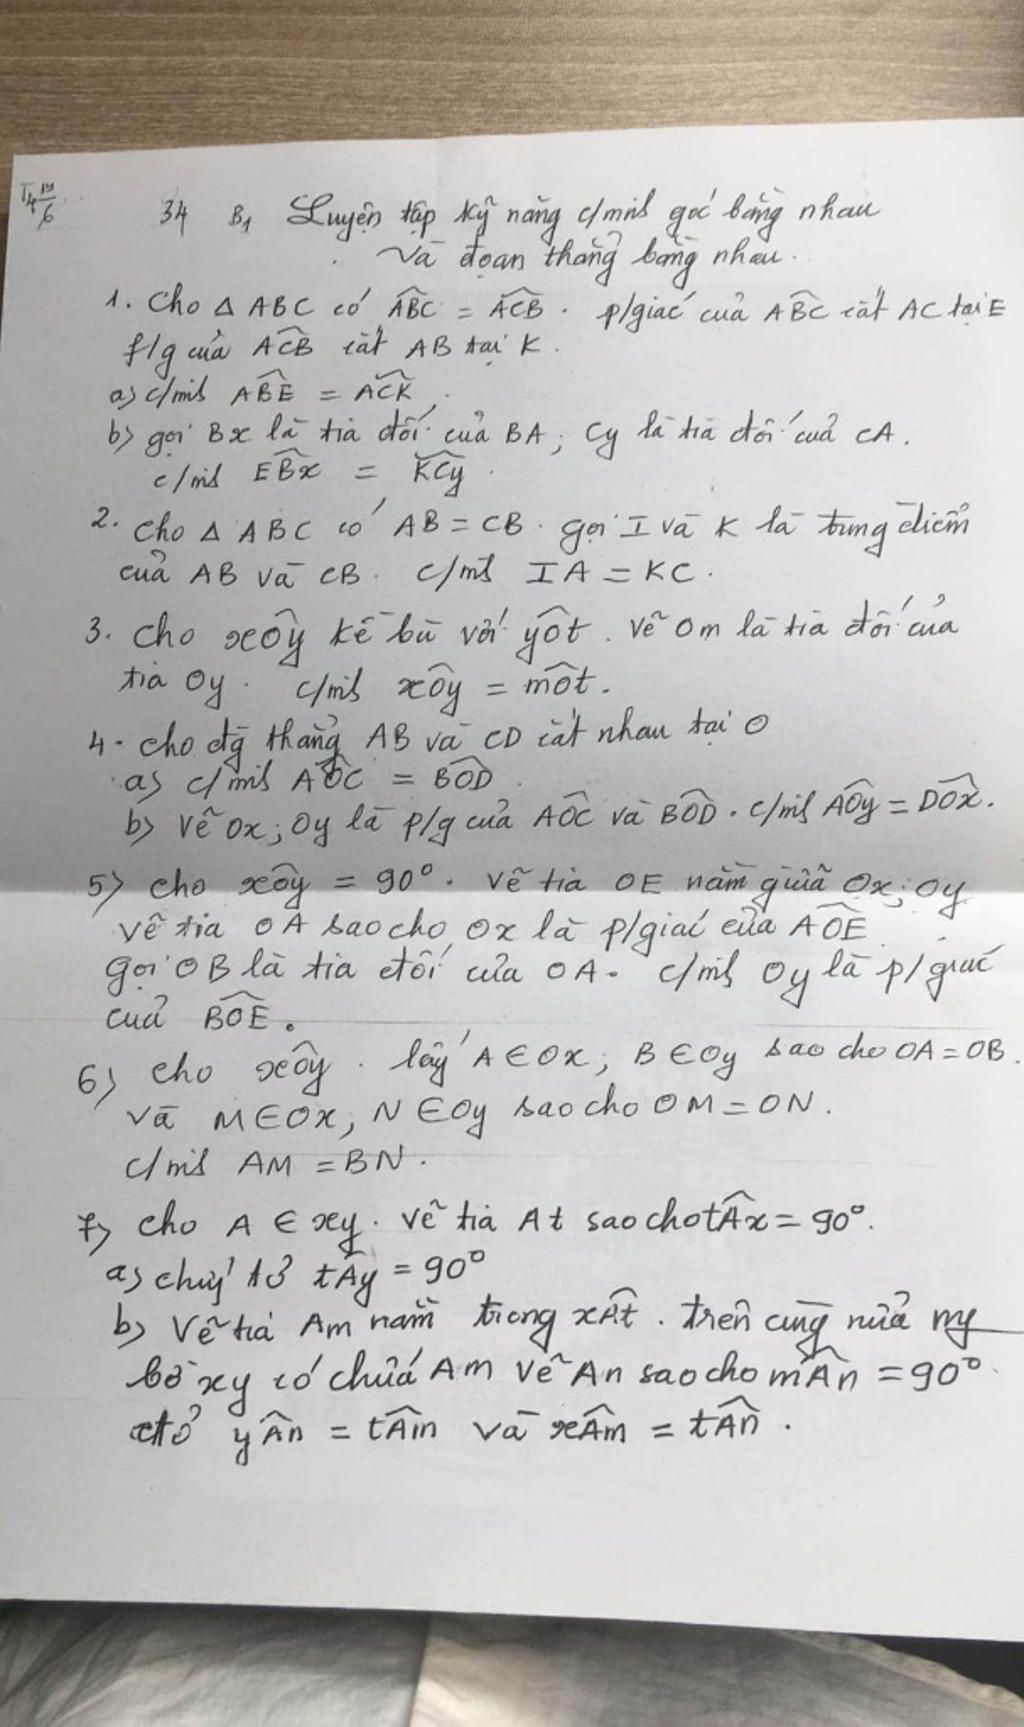 34 B₁ Luyện tập kỹ năng c/minh góc bằng nhau
và đoạn thẳng bằng nhau.
1. Cho △ ABC có ABC^ = ACB^. p/giác của ABC^ cắt AC tại E
f/g của ACB^ cắt AB tại K.
a) c/minh ABE^ = ACK^.
b) gọi Bx là tia đối của BA; Cy là tia đối của CA.
c/minh EBx^ = KCy^.
2. Cho △ ABC có AB = CB. gọi I và K là trung điểm
của AB và CB. c/m IA = KC.
3. Cho xOy^ kề bù với yOt^. vẽ Om là tia đối của
tia Oy. c/minh xOy^ = mOt^.
4. cho đg thẳng AB và CD cắt nhau tại O
a) c/minh AOC^ = BOD^
b) vẽ Ox; Oy là p/g của AOC^ và BOD^. c/minh AOy^ = DOx^.
5) cho xOy^ = 90°. vẽ tia OE nằm giữa Ox; Oy
vẽ tia OA sao cho Ox là p/giác của AOE^
gọi OB là tia đối của OA. c/minh Oy là p/giác
của BOE^.
6) cho xOy^. lấy A ∈ Ox; B ∈ Oy sao cho OA = OB.
và M ∈ Ox, N ∈ Oy sao cho OM = ON.
c/minh AM = BN.
7) cho A ∈ xy. vẽ tia At sao cho tAx^ = 90°.
a) chứ tỏ tAy^ = 90°
b) Vẽ tia Am nằm trong xAt^. trên cùng nửa mp
bờ xy có chứa Am vẽ An sao cho mAn^ = 90°.
c/tỏ yAn^ = tAm^ và xAm^ = tAn^.